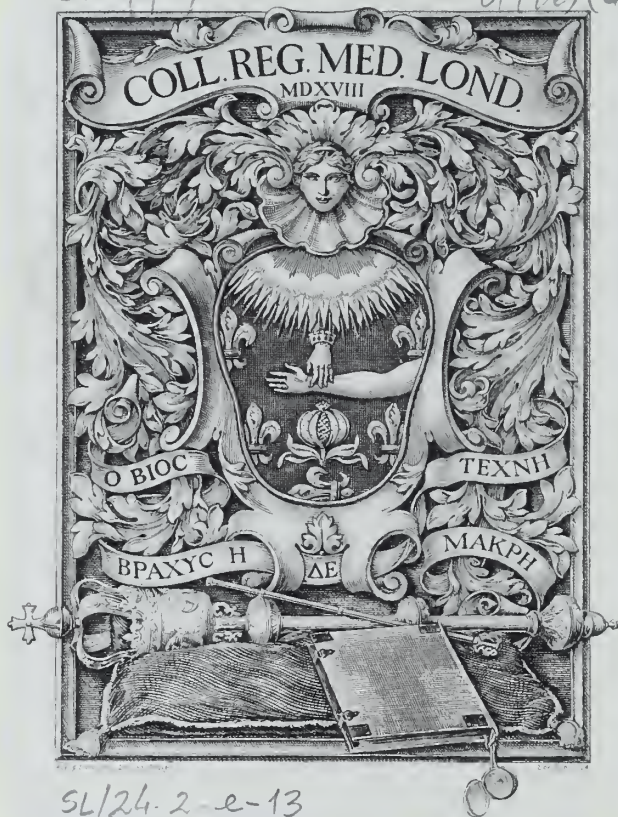 COLL. REG. MED. LOND.
MDXVIII
Ο ΒΙΟC
ΤΕΧΝΗ
ΒΡΑΧΥC Η
ΔΕ
ΜΑΚΡΗ
SL/24-2-e-13